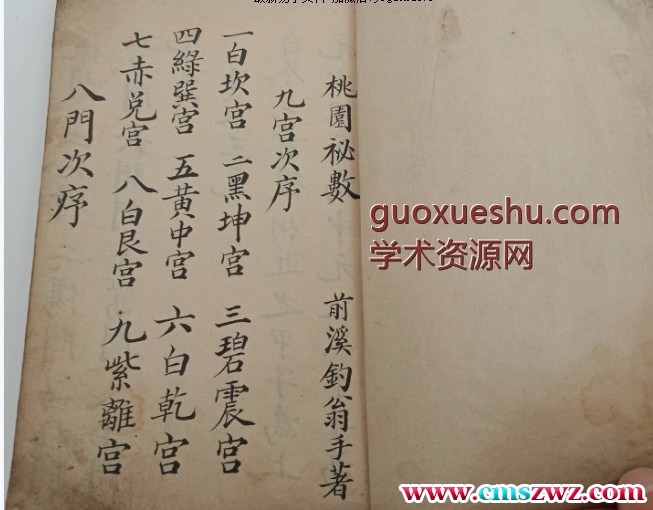 桃園祕數 前溪釣翁手著
九宮次序
一白坎宮 二黑坤宮 三碧震宮
四綠巽宮 五黃中宮 六白乾宮
七赤兌宮 八白艮宮 九紫離宮
八門次序
guoxueshu.com
学术资源网
www.cmszwz.com